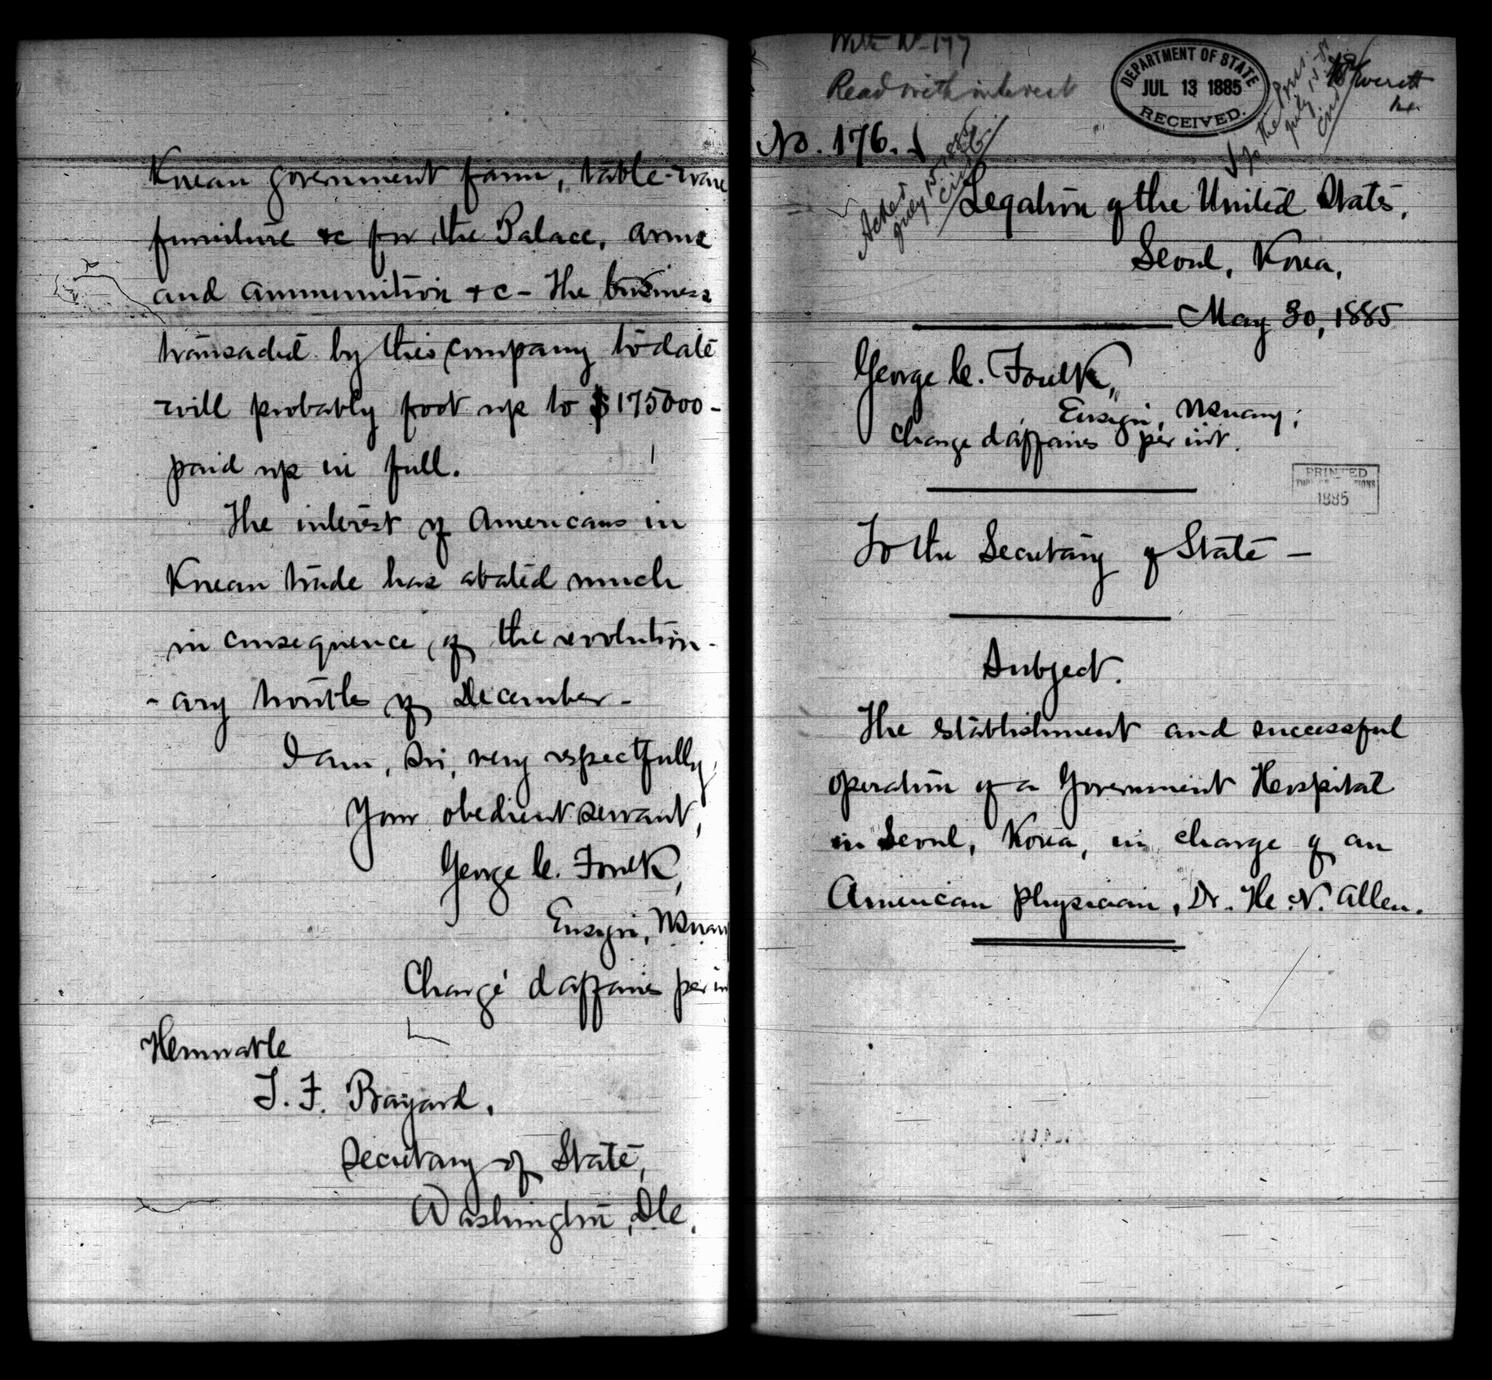 Korean government farm, table-ware
furniture &c for the Palace, arms
and ammunition &c - The business
transacted by this company to date
will probably foot up to $175000-
paid up in full.
The interest of Americans in
Korean trade has abated much
in consequence of the revolution-
-ary trouble of December-
I am, Sir, very respectfully,
Your obedient servant,
George C. Foulk,
Ensign, U.S. Navy
Chargé d'affaires per in
Honorable
T. F. Bayard,
Secretary of State,
Washington, D.C.
With No. 177
Read with interest
DEPARTMENT OF STATE
JUL 13 1885
RECEIVED.
To the Pres.
July 15-85
Everett
No. 176.
Ackd
July 15, 1885
Legation of the United States,
Seoul, Korea,
May 30, 1885
George C. Foulk,
Ensign, U.S. Navy;
Chargé d'affaires per int.
PRINTED
1885
To the Secretary of State -
Subject.
The establishment and successful
operation of a Government Hospital
in Seoul, Korea, in charge of an
American physician, Dr. H. N. Allen.